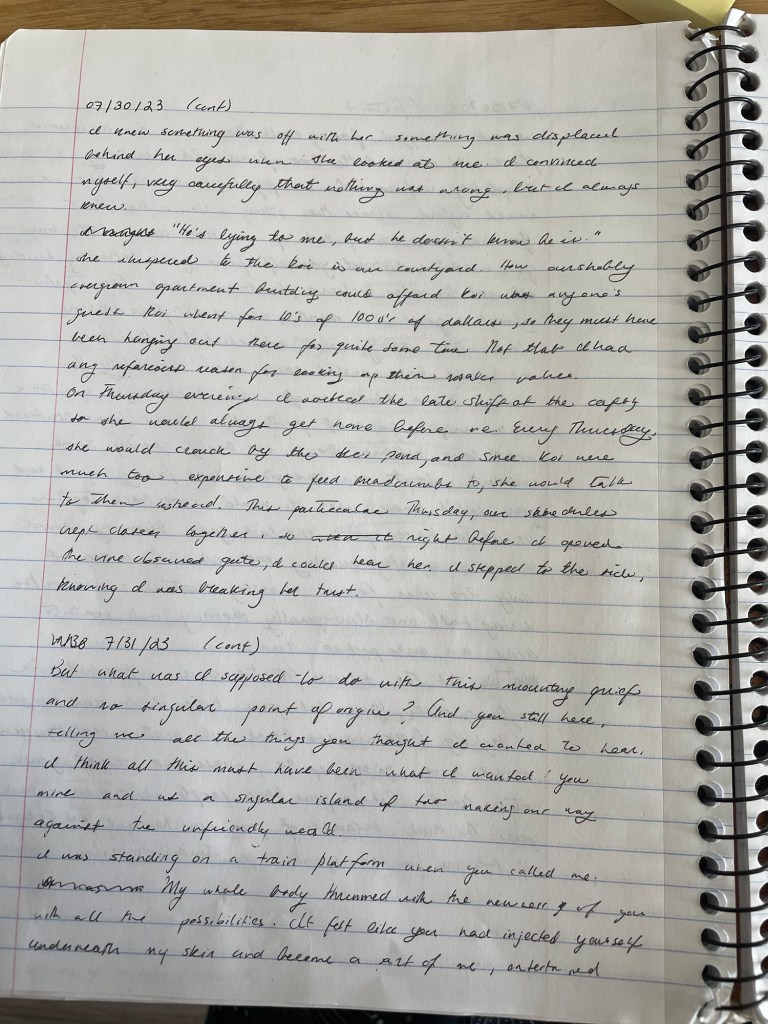 07/30/23 (cont)
I knew something was off with her. something was displaced
behind her eyes when she looked at me. I convinced
myself, very carefully that nothing was wrong, but I always
knew.
"He's lying to me, but he doesn't know he is."
she whispered to the koi in our courtyard. How our shabbily
overgrown apartment building could afford koi was anyone's
guess. Koi went for 10's of 100's of dollars, so they must have
been hanging out there for quite some time. Not that I had
any nefarious reason for looking up their resale value.
On Thursday evenings I worked the late shift at the
so she would always get home before me. Every Thursday,
she would crouch by the koi pond, and since koi were
much too expensive to feed breadcrumbs to, she would talk
to them instead. This particular Thursday, our schedules
crept closer together, so even it right before I opened
the vine obscured gate, I could hear her. I stepped to the side,
knowing I was breaking her trust.
7/31/23 (cont)
But what was I supposed to do with this mounting grief
and no singular point of origin? And you still here,
telling me all the things you thought I wanted to hear.
I think all this must have been what I wanted! you
mine and us a singular island of two making our way
against the unfriendly world.
I was standing on a train platform when you called me.
My whole body thrummed with the newness of you
with all the possibilities. It felt like you had injected yourself
underneath my skin and become a art of me,